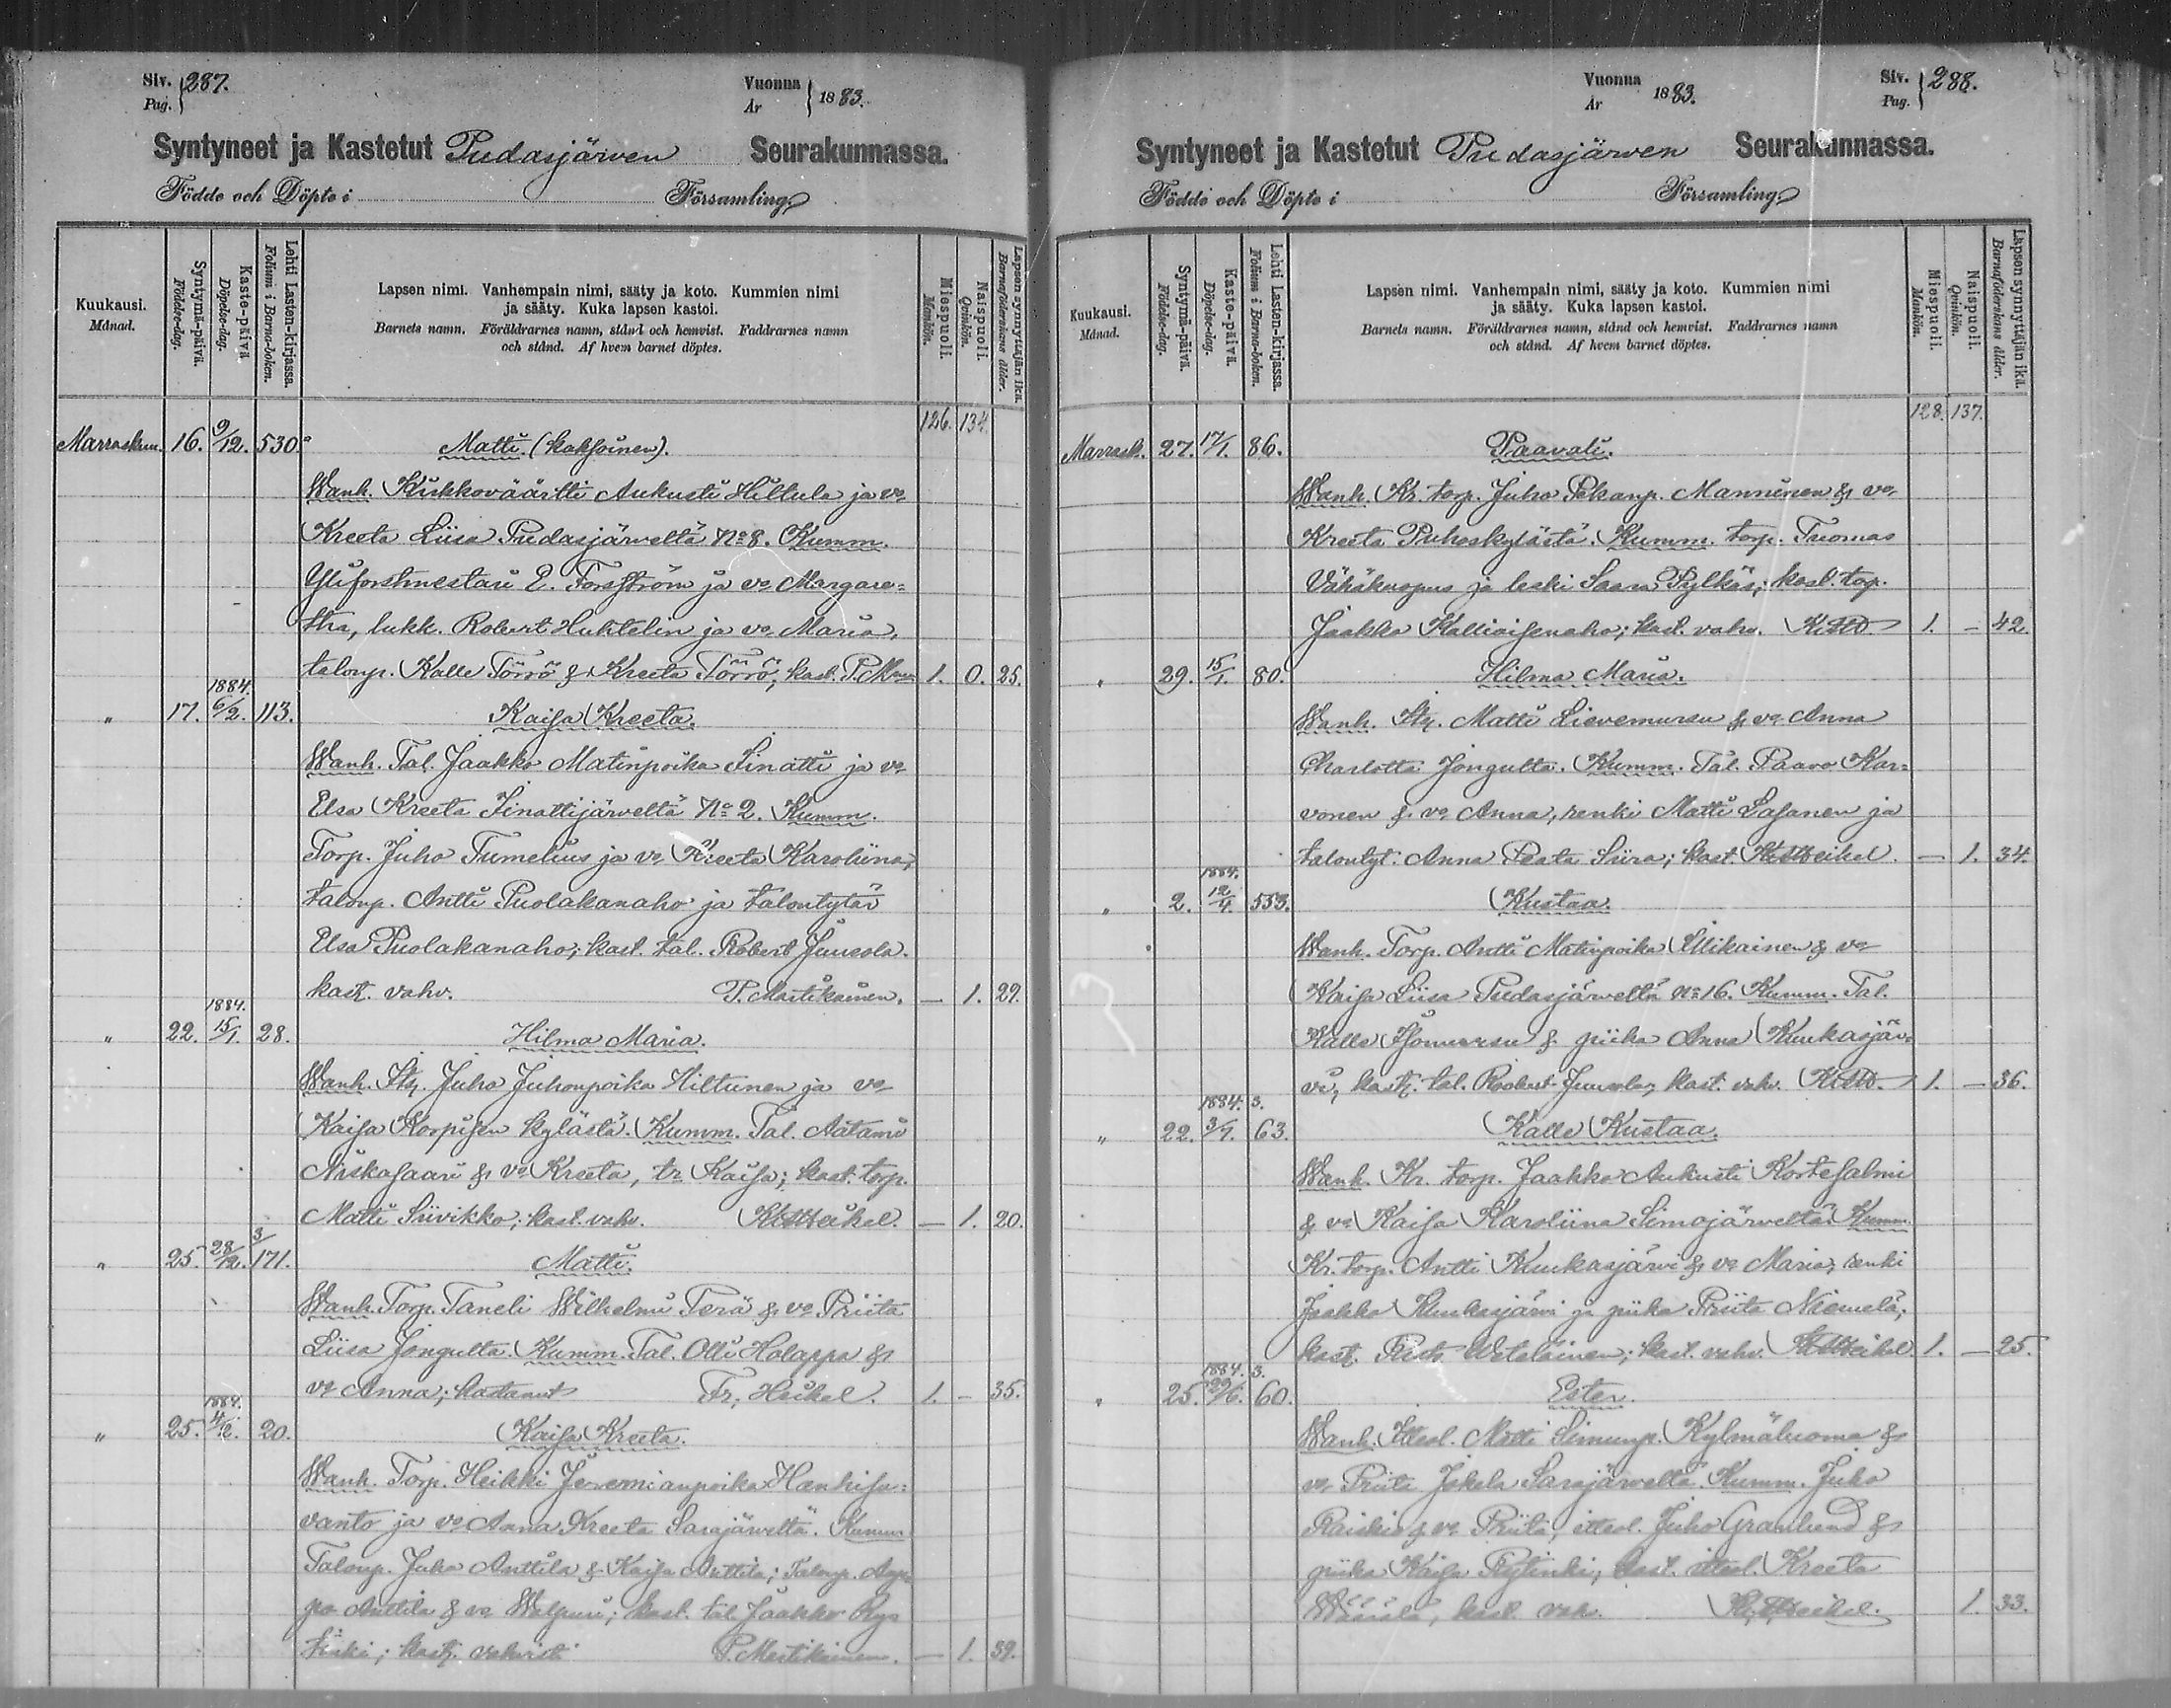 Siv. Pag. 287.
Vuonna År 1883.
Syntyneet ja Kastetut Pudasjärven Seurakunnassa.
Födde och Döpte i Församling
Kuukausi. Månad.
Syntymä-päivä. Födelse-dag.
Kaste-päivä. Döpelse-dag.
Lehti Lasten-kirjassa. Folium i Barna-boken.
Lapsen nimi. Vanhempain nimi, sääty ja koto. Kummien nimi
ja sääty. Kuka lapsen kastoi.
Barnets namn. Föräldrarnes namn, stånd och hemvist. Faddrarnes namn
och stånd. Af hvem barnet döptes.
Miespuoli. Mankön.
Naispuoli. Qvinkön.
Lapsen synnyttäjän ikä. Barnaföderskans ålder.
126. 134.
Marraskuu. 16. 9/12. 530. Matti. (kaksoinen).
Wanh. Kirkkoväärtti Aukusti Hiltula ja vo
Kreeta Liisa Pudasjärveltä No 8. Kumm.
Yliforstmestari E. Forsström ja vo Margare=
tha, lukk. Robert Huhtelin ja vo Maria,
talonp. Kalle Törrö & Kreeta Törrö; kast. 1. 0. 25.
1884.
" 17. 6/2. 113. Kaisa Kreeta.
Wanh. Tal. Jaakko Matinpoika Iinatti ja vo
Elsa Kreeta Iinattijärveltä No 2. Kumm.
Torp. Juho Tumelius ja vo Kreeta Karoliina;
talonp. Antti Puolakanaho ja talontytär
Elsa Puolakanaho; kast. tal. Robert Juusola.
kast. vahv. P. Martikainen. — 1. 29.
1884.
" 22. 15/1. 28. Hilma Maria.
Wanh. Itq. Juho Juhonpoika Hiltunen ja vo
Kaisa Korpisen kylästä. Kumm. Tal. Aatami
Niskasaari & vo Kreeta, tr Kaisa; kast. torp.
Matti Siivikko; kast. vahv. Heikel. — 1. 20.
3/
" 25. 28/12. 171. Matti.
Wanh. Torp. Taneli Wilhelmi Terä & vo Priita
Liisa Jongulta. Kumm. Tal. Olli Holappa &
vo Anna; kastanut Fr. Heikel. 1. — 35.
1884.
" 25. 20. Kaisa Kreeta.
Wanh. Torp. Heikki Jeremianpoika Hanhisu=
vanto ja vo Anna Kreeta Sarajärveltä. Kumm
Talonp. Juho Anttila & Kaisa Anttila; Talonp. Aap=
po Anttila & vo Walpuri; kast. tal. Jaakko Ryt
tinki; kast. vahvist P. Martikainen. — 1. 39.
Siv. Pag. 288.
Vuonna År 1883.
Syntyneet ja Kastetut Pudasjärven Seurakunnassa.
Födde och Döpte i Församling
Kuukausi. Månad.
Syntymä-päivä. Födelse-dag.
Kaste-päivä. Döpelse-dag.
Lehti Lasten-kirjassa. Folium i Barna-boken.
Lapsen nimi. Vanhempain nimi, sääty ja koto. Kummien nimi
ja sääty. Kuka lapsen kastoi.
Barnets namn. Föräldrarnes namn, stånd och hemvist. Faddrarnes namn
och stånd. Af hvem barnet döptes.
Miespuoli. Mankön.
Naispuoli. Qvinkön.
Lapsen synnyttäjän ikä. Barnaföderskans ålder.
128. 137.
Marrask. 27. 17/1. 86. Paavali.
Wanh. Kr. torp. Juho Pekanp. Manninen & vo
Kreeta Puhoskylästä. Kumm. torp. Tuomas
Vähäkuopus ja leski Saara Pylkäs; kast. torp.
Jaakko Kallioisenaho; kast. vahv. 1. — 42.
" 29. 15/1. 80. Hilma Maria.
Wanh. Itq. Matti Lievemursu & vo Anna
Charlotta Jongulta. Kumm. Tal. Paavo Kar=
vonen & vo Anna, renki Matti Lasanen ja
talontyt. Anna Peata Siira; kast. Heikel. — 1. 34.
1884.
" 2. 12/4. 553. Kustaa.
Wanh. Torp. Antti Matinpoika Illikainen & vo
Kaisa Liisa Pudasjärveltä No 16. Kumm. Tal.
Kalle Isomursu & piika Anna Kuukasjär=
vi, kast. tal. Robert Juusola, kast. vahv. 1. — 36.
1884. 3.
" 22. 3/1. 63. Kalle Kustaa.
Wanh. Kr. torp. Jaakko Aukusti Kortesalmi
& vo Kaisa Karoliina Simojärveltä. Kumm
Kr. torp. Antti Kuukasjärvi & vo Maria; renki
Jaakko Kuukasjärvi ja piika Priita Niemelä;
kast. Risto Weteläinen; kast. vahv. Heikel. 1. — 25.
1884. 3.
" 25. 29/6. 60. Ester.
Wanh. Ittesl. Matti Simunp. Kylmäluoma &
vo Priita Jokela Sarajärveltä. Kumm. Juho
Raiskio & vo Priita, ittesl. Juho Granlund &
piika Kaisa Rytinki; kast. ittesl. Kreeta
Määttä, kast. vah. Heikel. 1. 33.